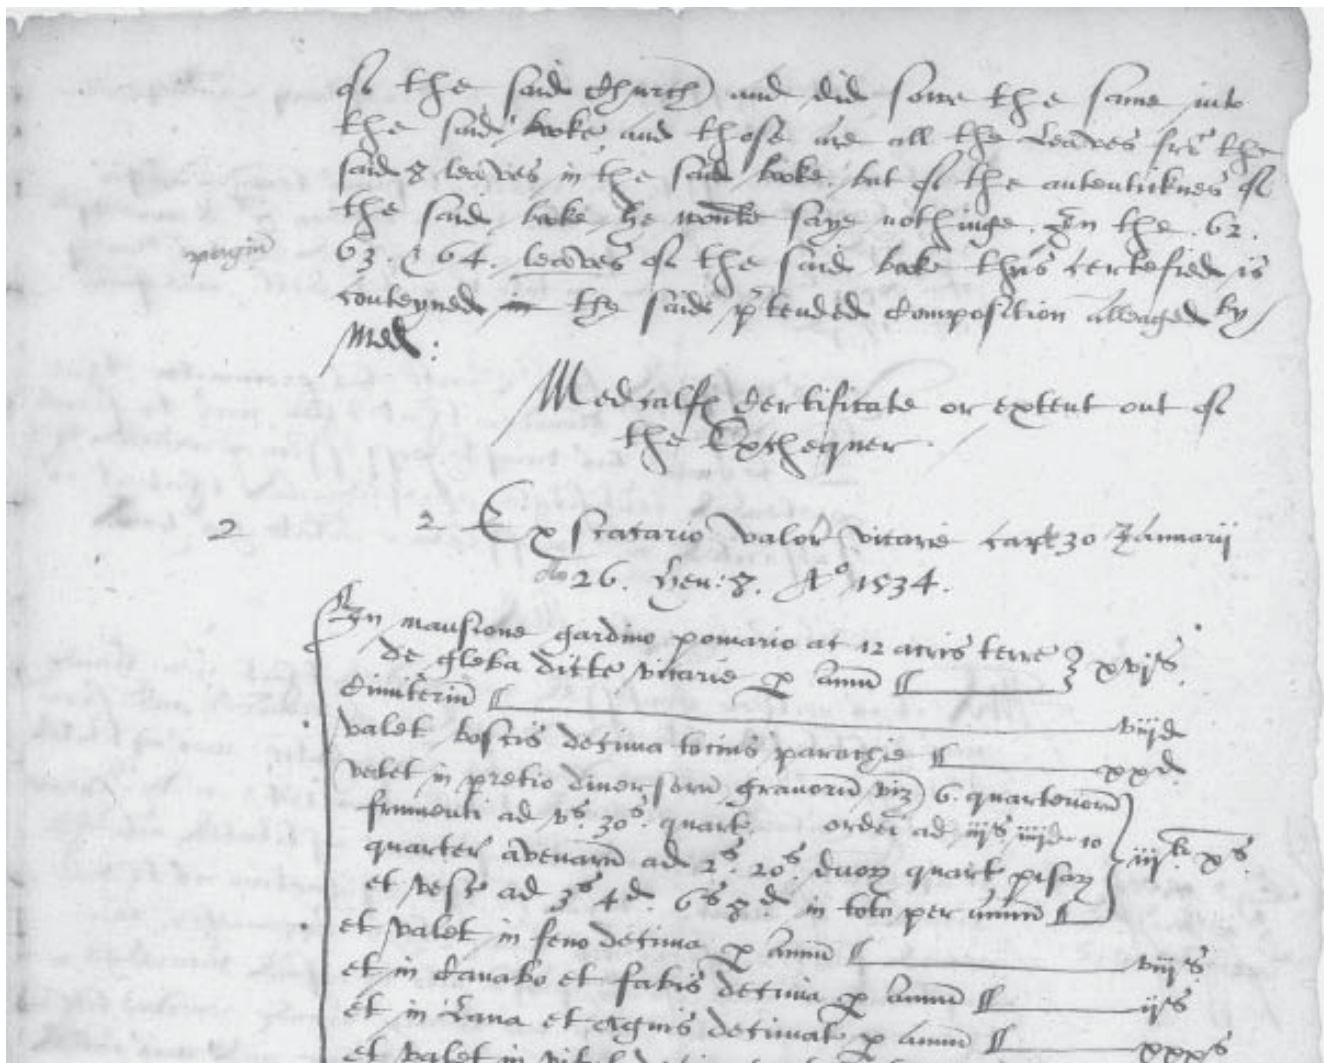 of the said Church and did sowe the same into
the said booke and those are all the leaves for the
said 8 leaves in the said booke. but of the autentiknes of
the said booke he would saye nothinge. In the .62.
pagin
63. & 64. leaves of the said booke thus certefied is
conteyned in the said p'tended composition alleaged by
Med:
Medcalfs Certificate or extent out of
the Exchequer.
2 2 Ex Scacario valor vicarie capt 30 Januarii
Ao 26. Hen: 8. Ao 1534.
In mansione gardino pomario at 12 acris terre
de gleba dicte vicarie p annu xvjs.
Cimiteriu viijd
valet boscis decima totius parochie xxd
valet in pretio diversoru granoru viz 6. quarteriorū
frumenti ad vs. 30s. quart. ordei ad iijs iiijd 10
quarter avenaru ad 2s. 20s. duor quart pisar iijli xs.
et vesc ad 3s 4d. 6s 8d in toto per annum
et valet in feno decima p annu viijs
et in canabo et fabis decima p annu ijs
et in Lana et Agnis decimat p annu xxxs
et valet in